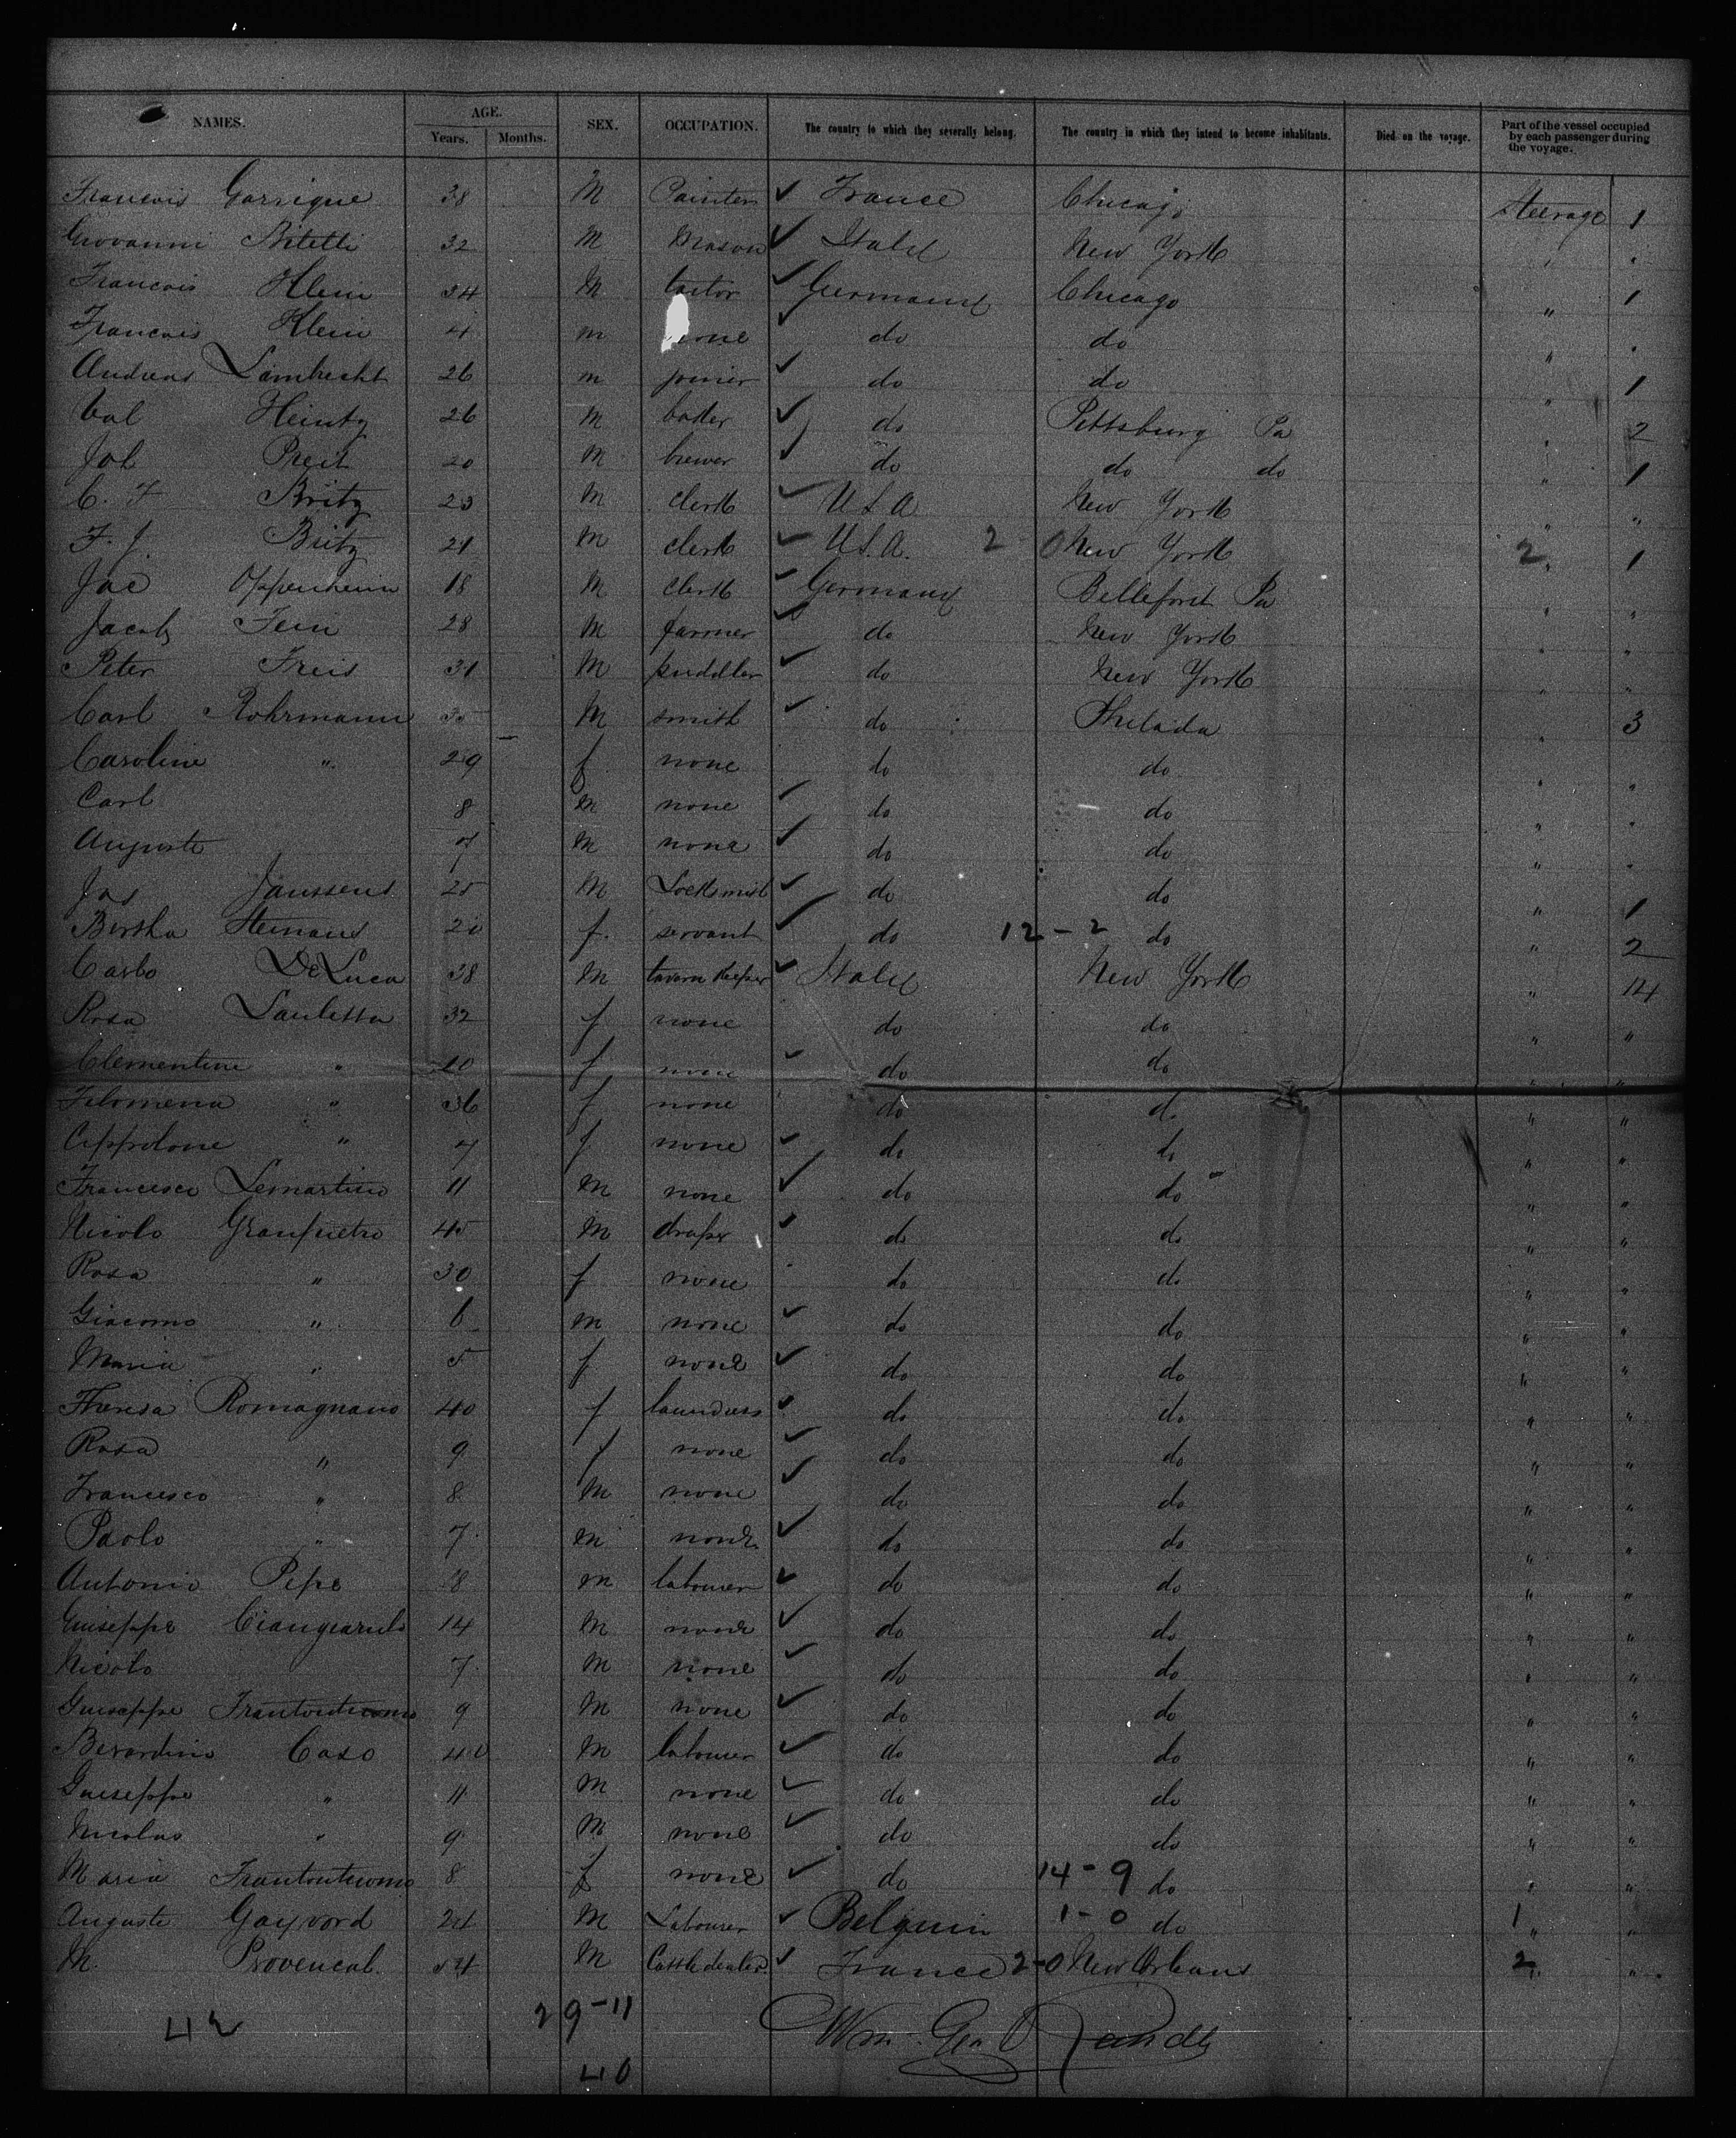 NAMES. AGE. SEX. OCCUPATION. The country to which they severally belong. The country in which they intend to become inhabitants. Died on the voyage. Part of the vessel occupied by each passenger during the voyage.
Years. Months.
Francois Garrigue 38 M Painter ✓ France Chicago Steerage 1
Giovanni Bitetti 32 M Mason ✓ Italy New York "
Francois Klein 34 M tailor ✓ Germany Chicago " 1
Francois Klein 4 m none ✓ do do " "
Andreas Lambrecht 26 m joiner ✓ do do " 1
Val Heintz 26 M baker ✓ do Pittsburg Pa " 2
Joh 20 M brewer ✓ do do do " 1
C. F Britz 23 M clerk ✓ U S A New York " "
F. J. Britz 21 M clerk ✓ U.S.A. 2 0 New York 2 " 1
Jac Oppenheim 18 M clerk ✓ Germany Bellefont Pa " "
Jacob Fein 28 M farmer ✓ do New York " "
Peter Freis 31 M puddler ✓ do New York " "
Carl Rohrmann 35 M smith ✓ do Philada " 3
Caroline " 29 f none do do " "
Carl 8 M none ✓ do do " "
Auguste 7 M none ✓ do do " "
Jos Janssens 25 M Locksmith ✓ do do " 1
Bertha 20 f. servant ✓ do 12 - 2 do " 2
Carlo De Luca 38 M tavern Keeper ✓ Italy New York " 14
Rosa Lauletta 32 f none do do " "
Clementine " 20 f none ✓ do do " "
Filomena " 36 f none do do " "
" 7 f none ✓ do do " "
Francesco Lemartino 11 M none ✓ do do " "
Nicolo Granpietro 45 M draper ✓ do do " "
Rosa " 30 f none do do " "
Giacomo " 6 m none ✓ do do " "
Maria " 5 f none ✓ do do " "
Theresa Romagnano 40 f laundress ✓ do do " "
Rosa " 9 f none ✓ do do " "
Francesco " 8 M none ✓ do do " "
Paolo " 7 m none ✓ do do " "
Antonio Pepe 18 m labourer ✓ do do " "
Guiseppe Ciangiarulo 14 M none ✓ do do " "
Nicolo 7 M none ✓ do do " "
Guiseppe 9 M none ✓ do do " "
Berardino Caso 40 M labourer ✓ do do " "
Guiseppe " 11 M none ✓ do do " "
Nicolas " 9 M none ✓ do do " "
Maria 8 f none ✓ do 14 - 9 do " "
Auguste Gayvord 24 M Labourer ✓ Belguin 1 - 0 do 1 " "
M. Provencal 54 M Cattle dealer ✓ France 2-0 New Orleans 2 " "
42 29-11 Wm. Geo. Randle
40